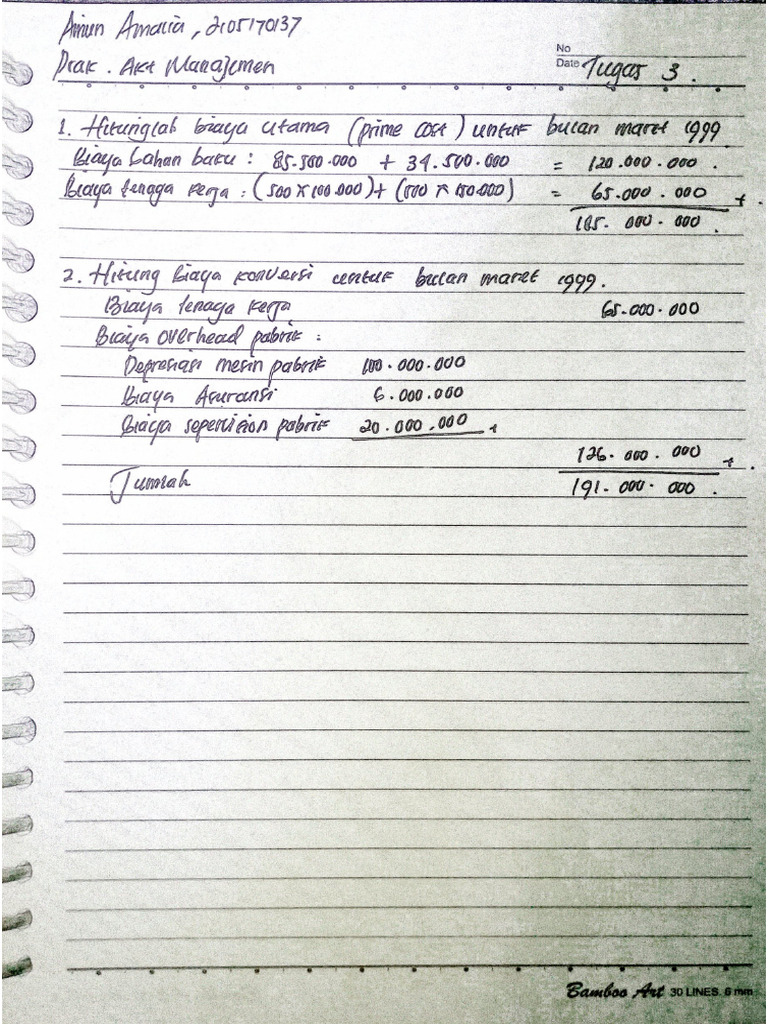 Ainun Amalia, 2105170137
No
Prak. Akt Manajemen
Date Tugas 3.
1. Hitunglah biaya utama (prime cost) untuk bulan maret 1999
Biaya bahan baku : 85.500.000 + 34.500.000 = 120.000.000.
Biaya tenaga kerja : (500 x 100.000) + (100 x 150.000) = 65.000.000 +.
185.000.000.
2. Hitung Biaya konversi untuk bulan maret 1999.
Biaya tenaga kerja 65.000.000
Biaya overhead pabrik :
Depresiasi mesin pabrik 100.000.000
Biaya Asuransi 6.000.000
Biaya supervision pabrik 20.000.000 +
126.000.000 +.
Jumlah 191.000.000.
Bamboo Art 30 LINES. 6 mm